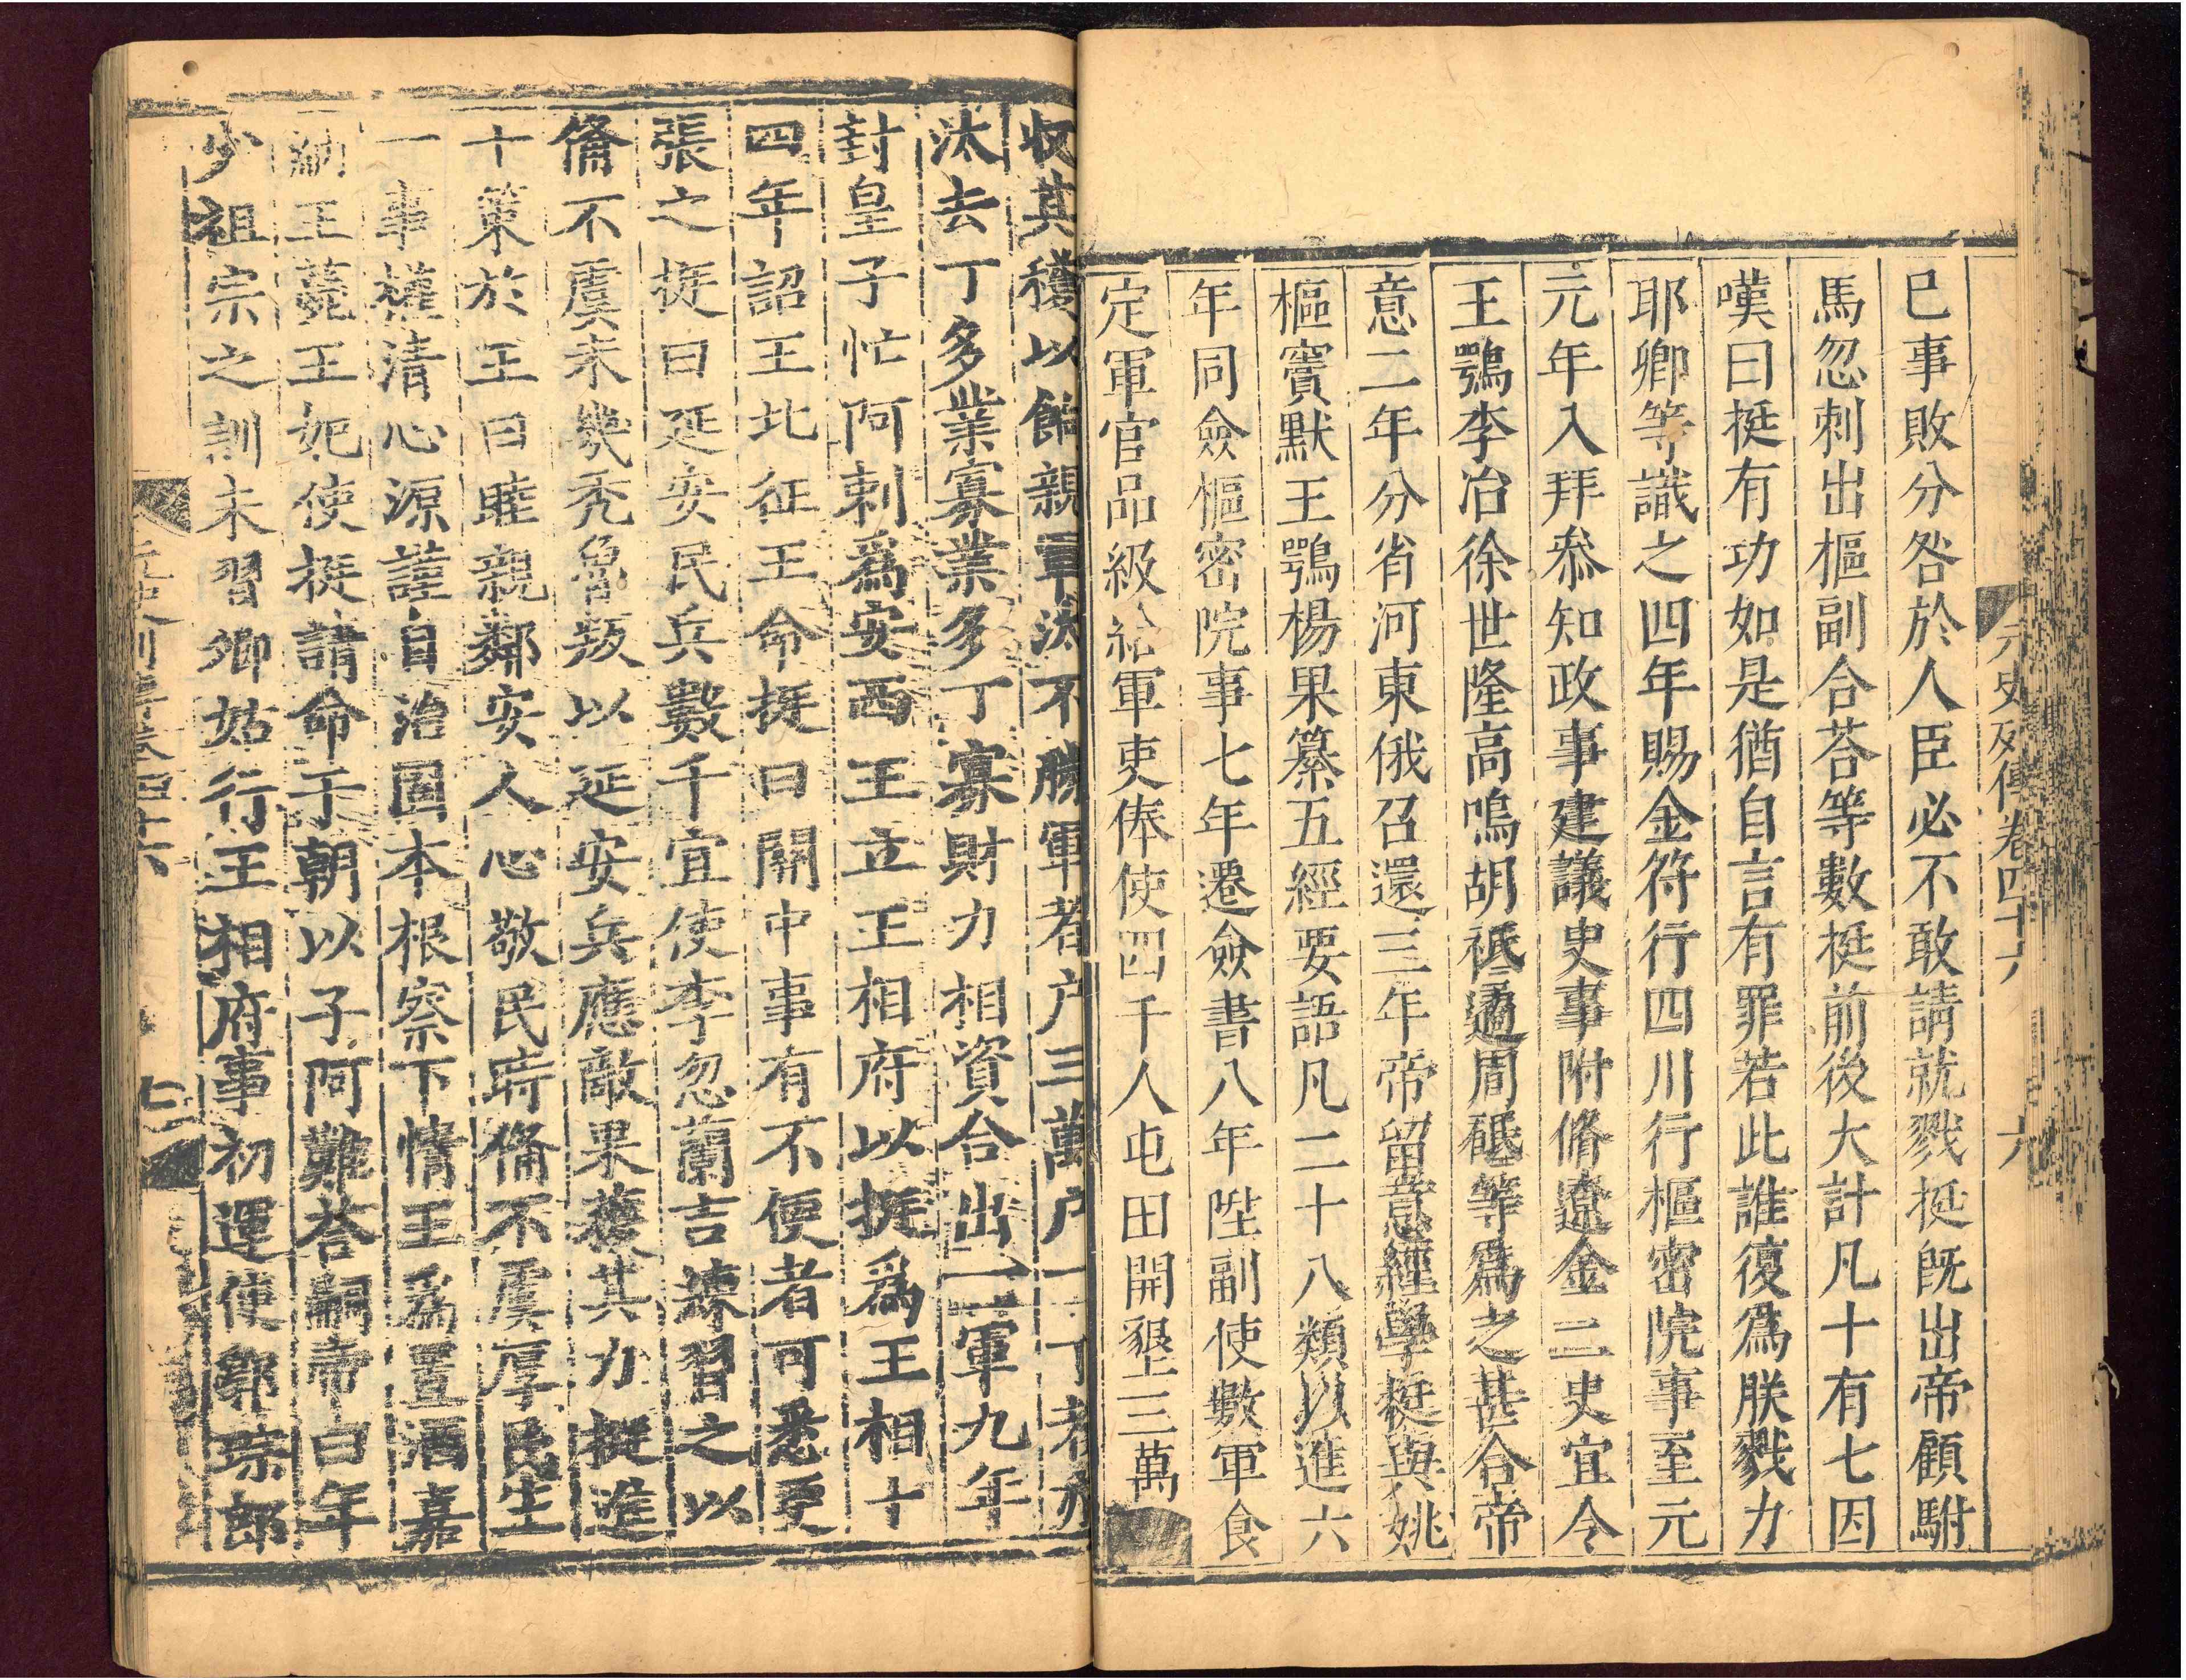 元史列傳卷四十六　六
巳事敗分咎於人臣必不敢請就戮挺既出帝顧駙
馬忽剌出樞副合荅等數挺前後大計凡十有七因
嘆曰挺有功如是猶自言有罪若此誰復爲朕戮力
耶卿等識之四年賜金符行四川行樞密院事至元
元年入拜叅知政事建議史事附脩遼金二史宜令
王鶚李冶徐世隆高鳴胡祗遹周砥等爲之甚合帝
意二年分省河東俄召還三年帝留意經學挺與姚
樞竇默王鶚楊果纂五經要語凡二十八類以進六
年同僉樞密院事七年遷僉書八年陞副使數軍食
定軍官品級給軍吏俸使四千人屯田開墾三萬
收其穫以餉親軍汰不勝軍者户三萬户一丁者亦
汰去丁多業寡業多丁寡財力相資合出一軍九年
封皇子忙阿剌爲安西王立王相府以挺爲王相十
四年詔王北征王命挺曰關中事有不便者可悉更
張之挺曰延安民兵數千宜使李忽蘭吉練習之以
俻不虞未幾禿魯叛以延安兵應敵果獲其力挺進
十策於王曰睦親鄰安人心敬民時俻不虞厚民生
一事權清心源謹自治固本根察下情王爲置酒嘉
納王薨王妃使挺請命于朝以子阿難荅嗣帝曰年
少祖宗之訓未習卿姑行王相府事初運使郭琮郎
元史列傳卷四十六　七